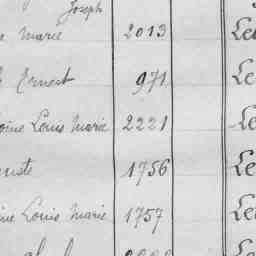 Joseph
Marie 2013 Le
Ernest 971 Le
oine Louis Marie 2221 Le
uste 1756 Le
ine Louis Marie 1757 Le